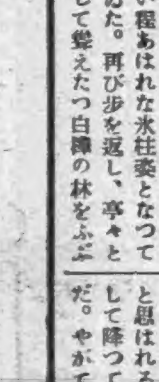 い程あはれな氷柱姿となつて
めた。再び歩を返し、亭々と
して聳えたつ白樺の林をふぶ
と思はれる
して降つて
だ。やがて